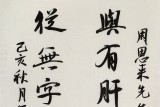 與有肝
從無字
用周恩来先
乙亥秋月